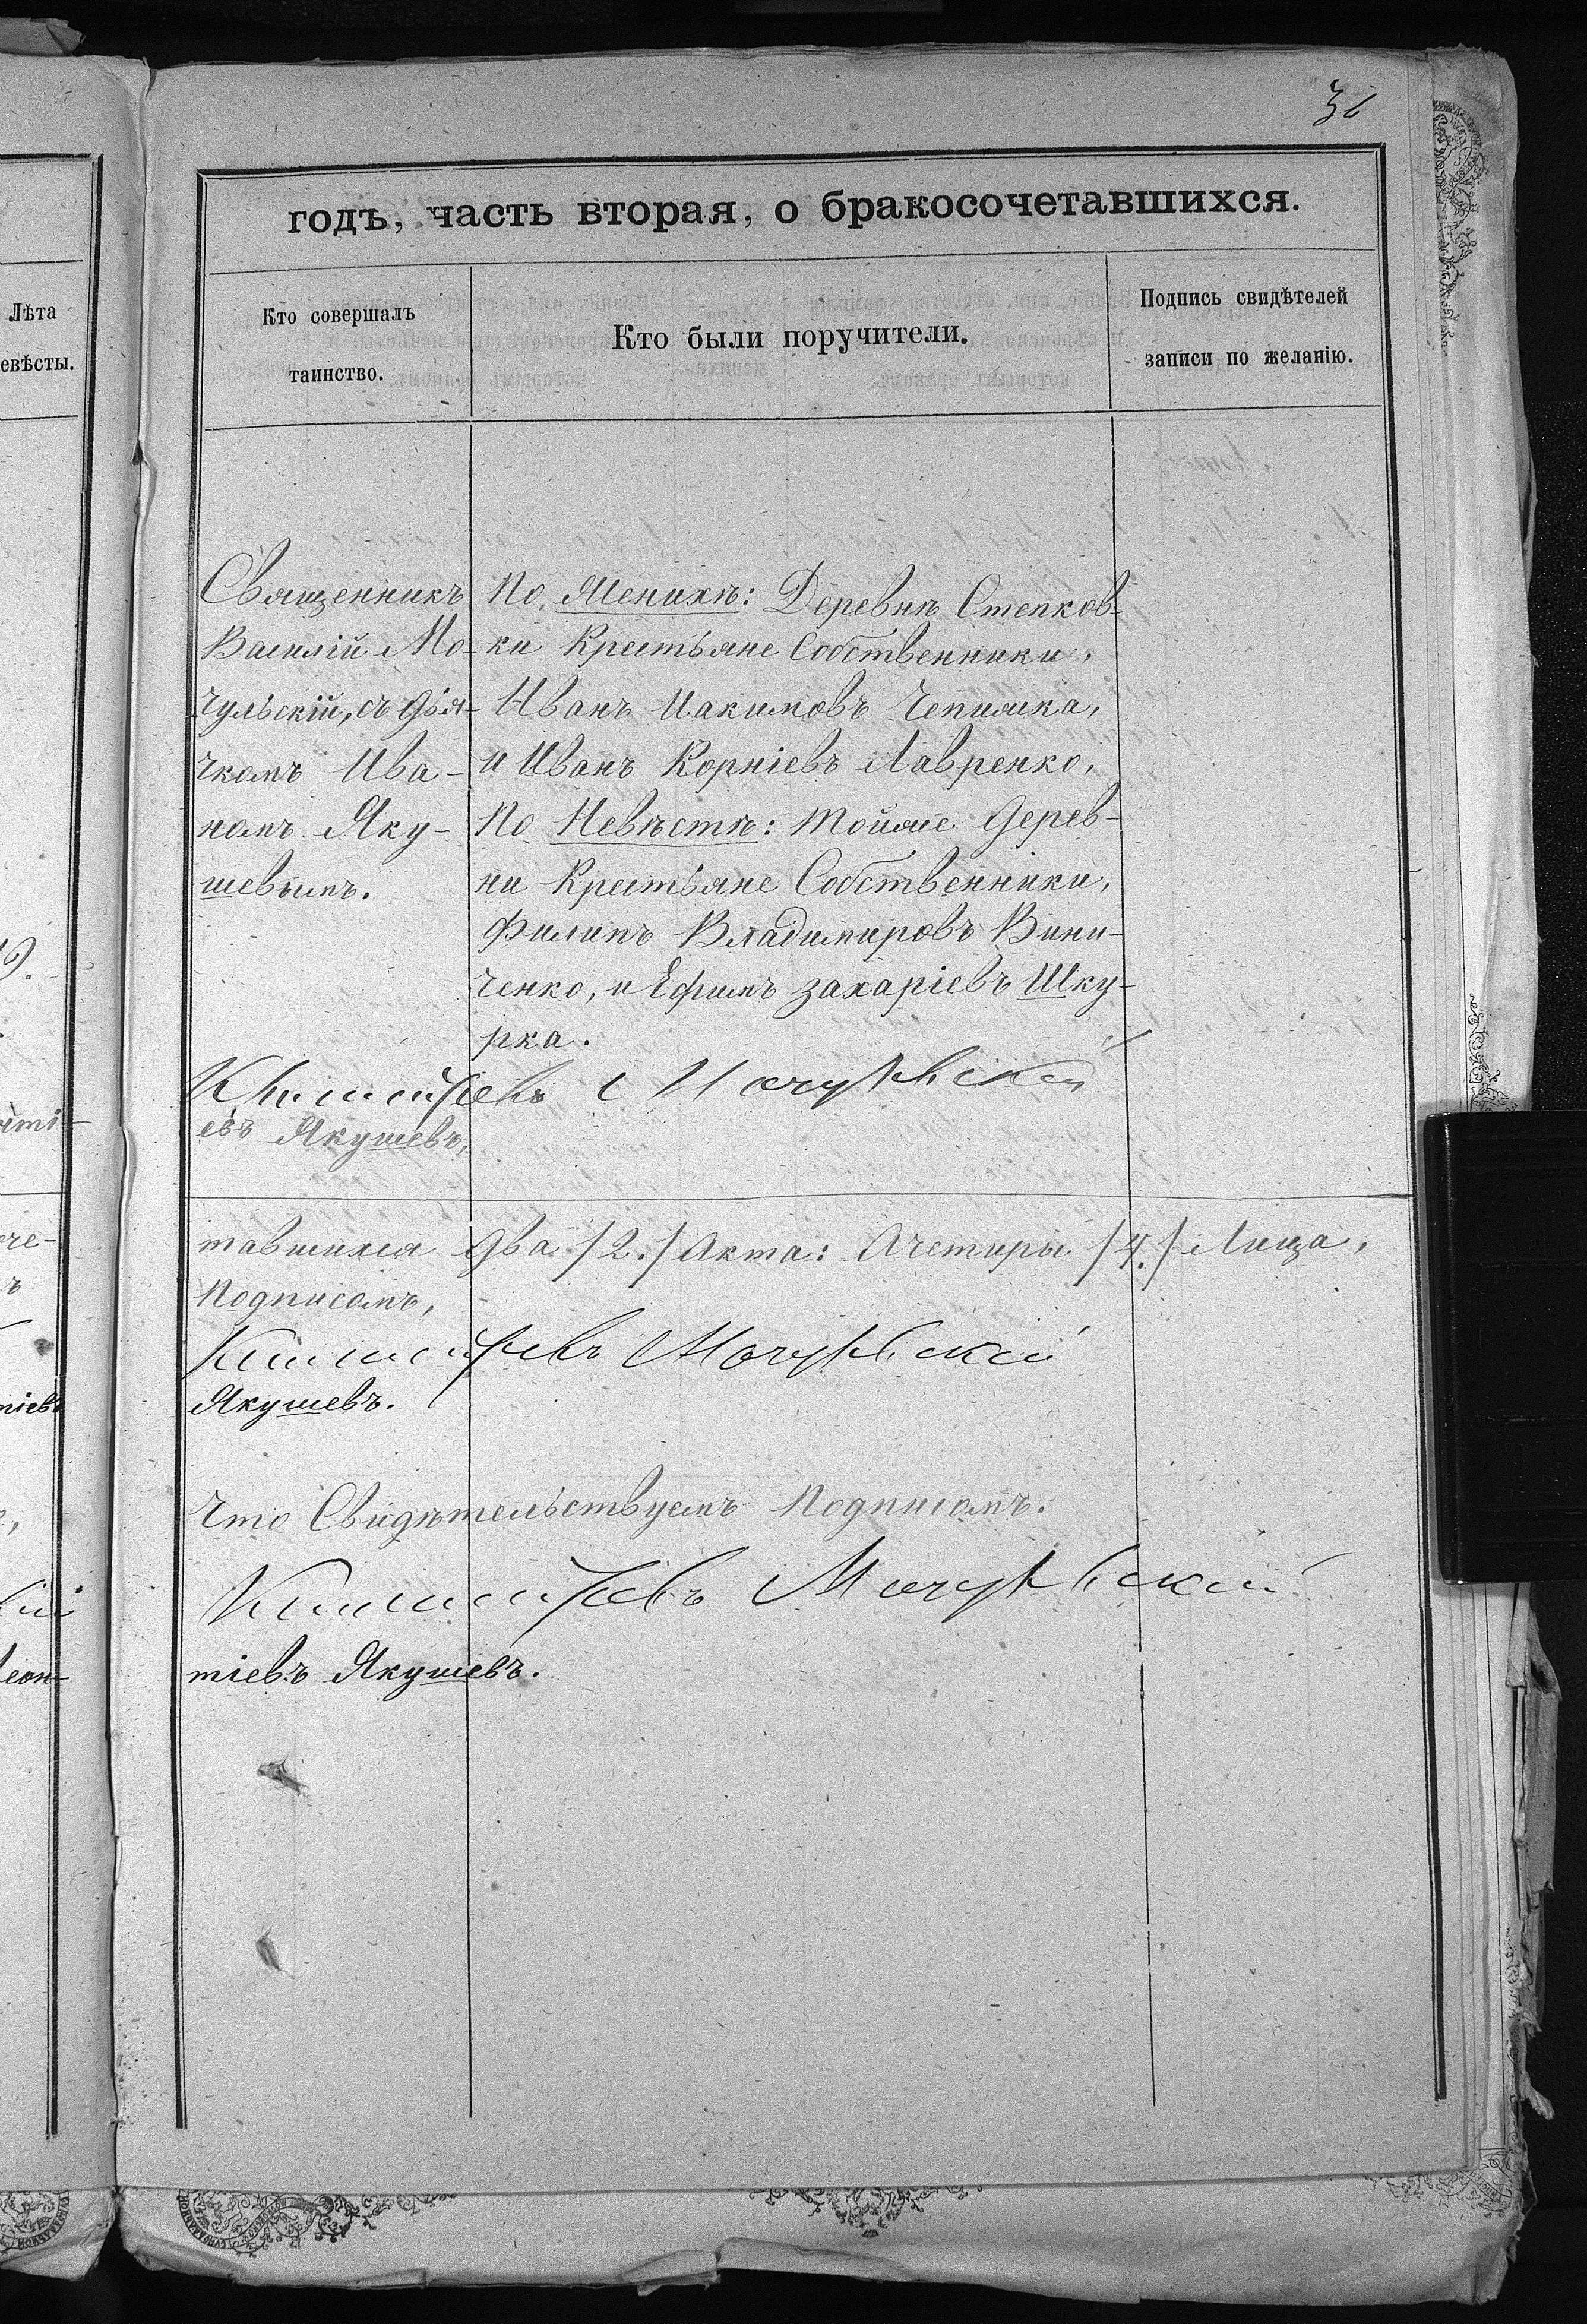 36
годъ, часть вторая, о бракосочетавшихся.
Лѣта
евѣсты.
Кто совершалъ
таинство.
Кто были поручители.
Подпись свидѣтелей
записи по желанію.
Священникъ
Василій Мо-
чульскій, съ дья-
чкомъ Ива-
номъ Яку-
шевымъ.
По Женихѣ: Деревнѣ Степков-
ки Крестьяне Собственники,
Иванъ Иакимовъ Чепижка,
и Иванъ Корніевъ Лавренко,
По Невѣстѣ: тойже дерев-
ни Крестьяне Собственники,
Филипъ Владимировъ Вини-
ченко, и Ефимъ Захаріевъ Шку-
рка.
Мочульскій
евъ Якушевъ,
тавшихся два /2./ Акта: Ачетыри /4./ Лица,
Подписомъ,
Мочульскій
Якушевъ.
Что Свидѣтельствуемъ Подписомъ.
Мочульскій
тіевъ Якушевъ.